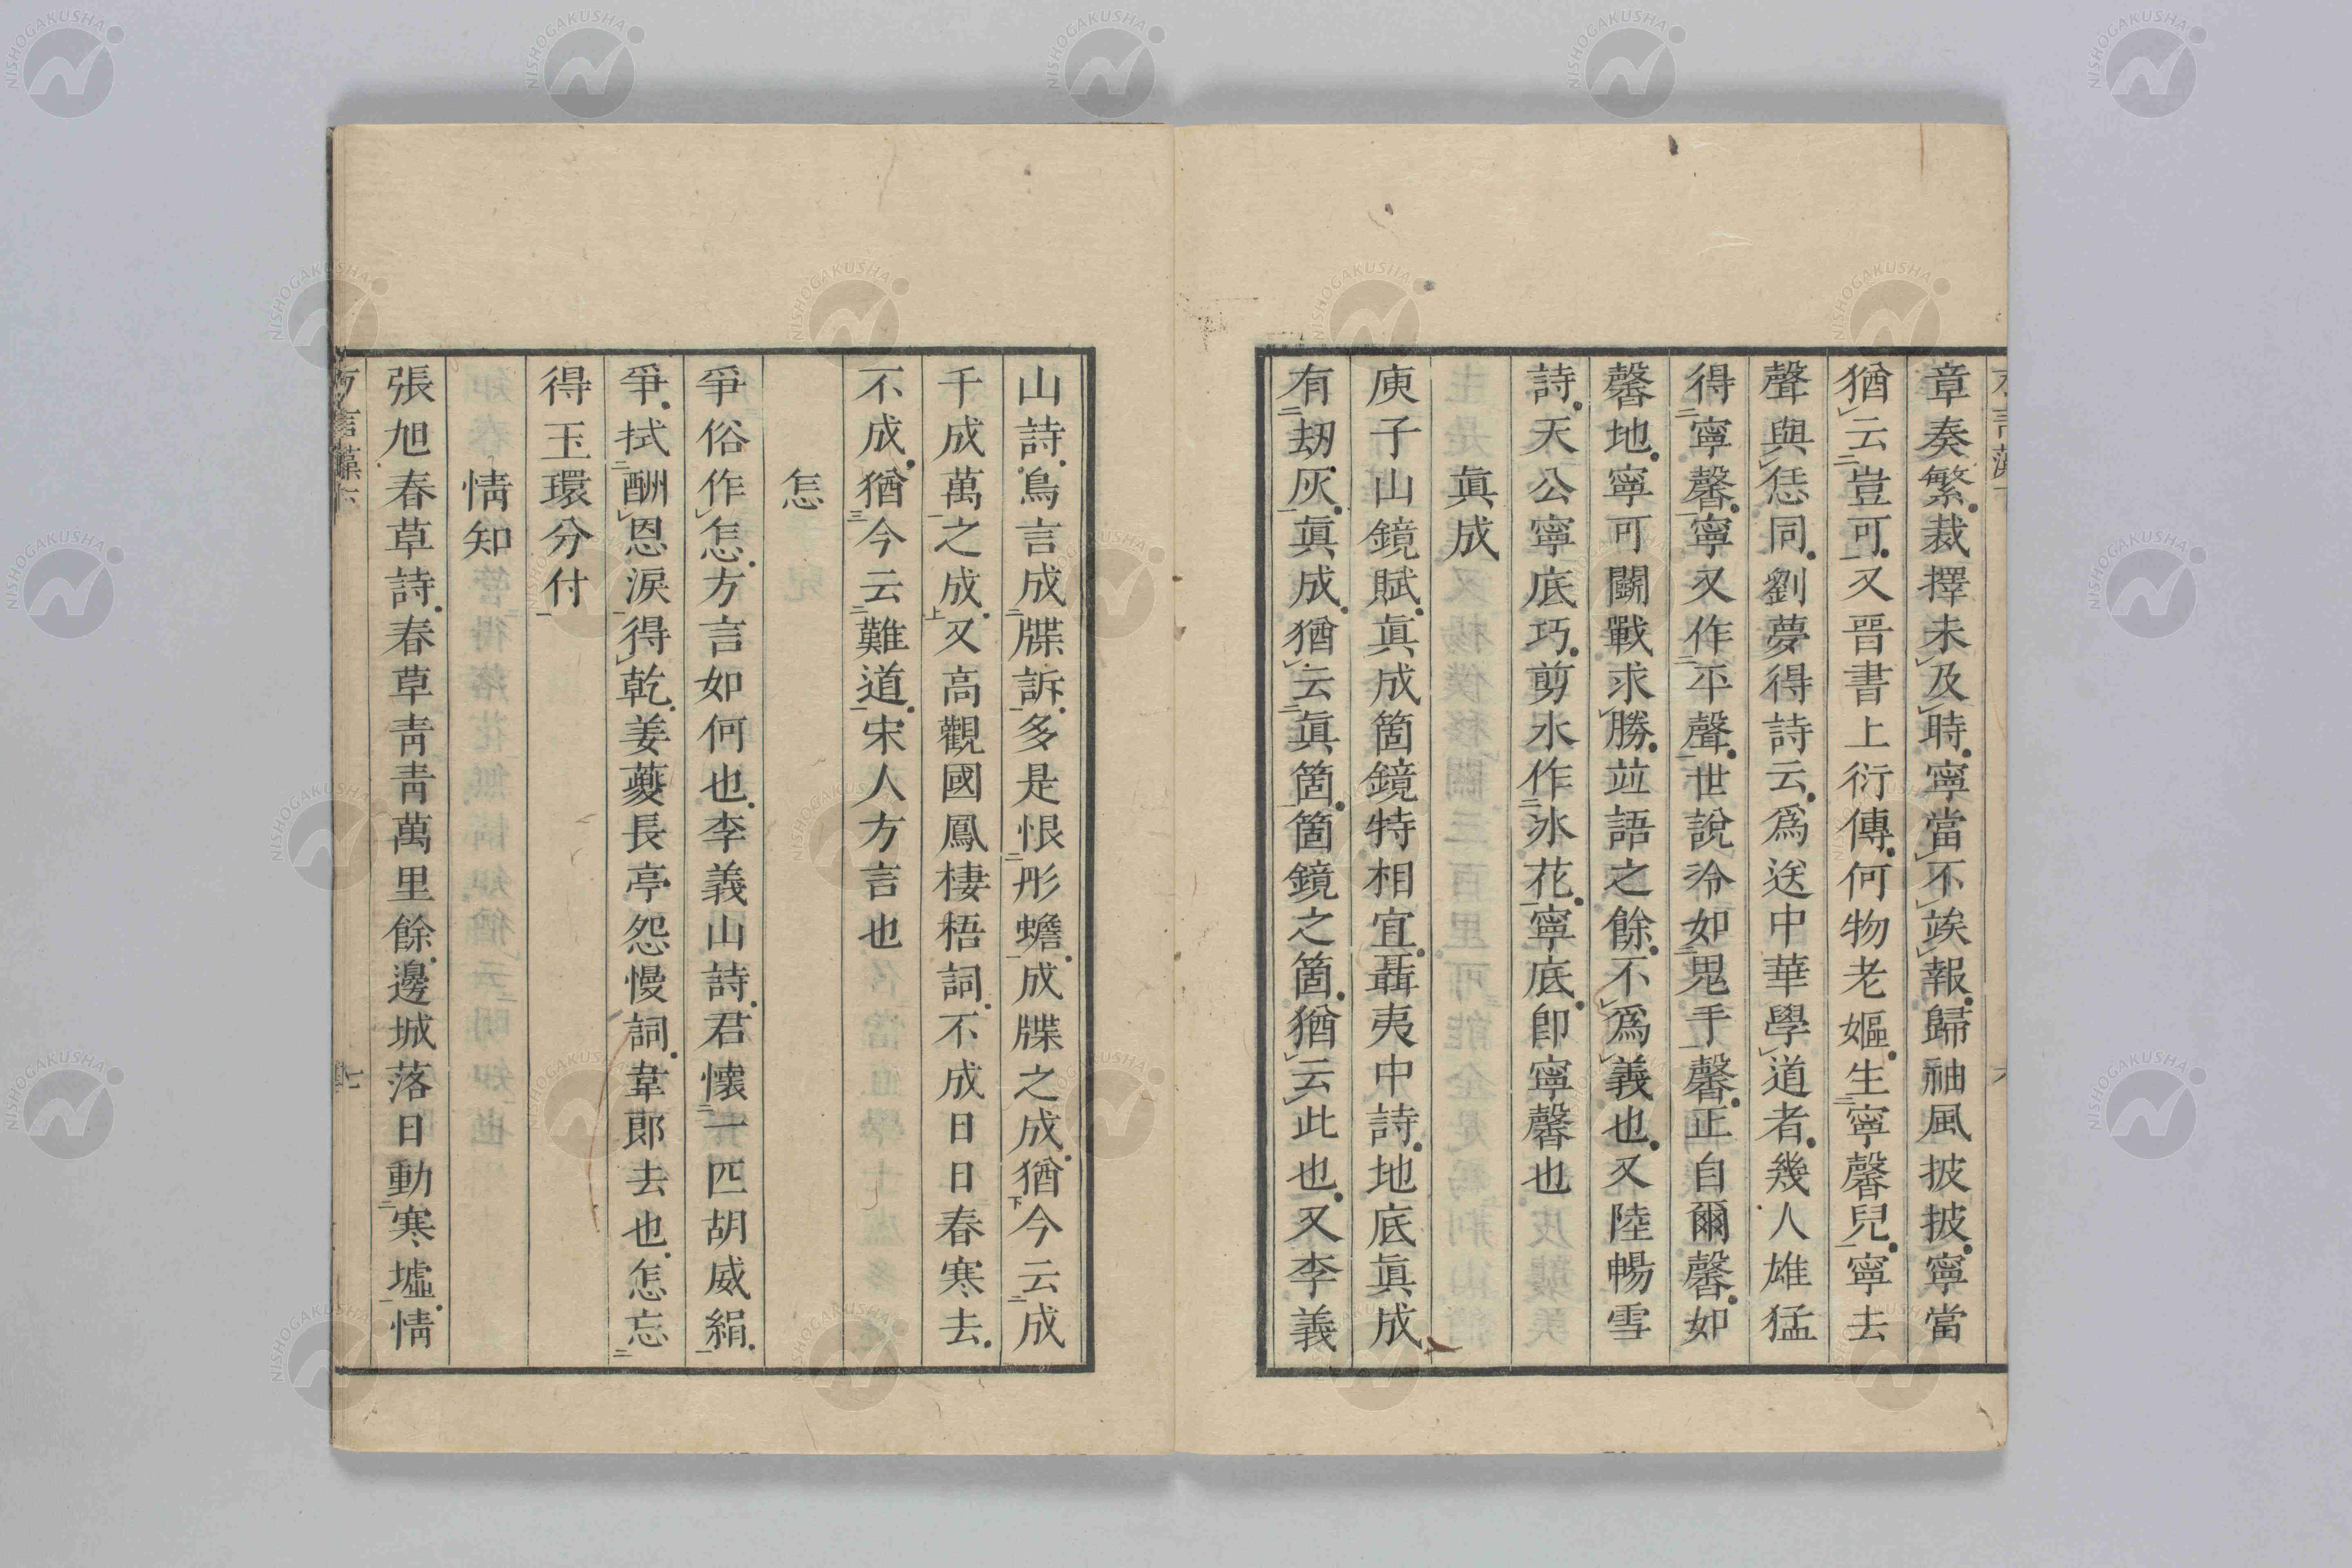 章奏繁裁擇未及時寧當不竢報歸袖風披披寧當
猶云豈可又晉書上衍傳何物老嫗生寧馨兒寧去
聲與恁同劉夢得詩云爲送中華學道者幾人雄猛
得寧馨寧又作平聲世說冷如鬼手馨正自爾馨如
馨地寧可鬭戰求勝竝語之餘不爲義也又陸暢雪
詩天公寧底巧剪水作氷花寧底卽寧馨也
眞成
庾子山鏡賦眞成箇鏡特相宜聶夷中詩地底眞成
有劫灰眞成猶云眞箇箇鏡之箇猶云此也又李義
山詩鳥言成牒訴多是恨彤蟾成牒之成猶今云成
千成萬之成又高觀國鳳棲梧詞不成日日春寒去
不成猶今云難道宋人方言也
怎
爭俗作怎方言如何也李義山詩君懷一匹胡威絹
爭拭酬恩淚得乾姜夔長亭怨慢詞韋郞去也怎忘
得玉環分付
情知
張旭春草詩春草靑靑萬里餘邊城落日動寒墟情
七
NISHOGAKUSHA